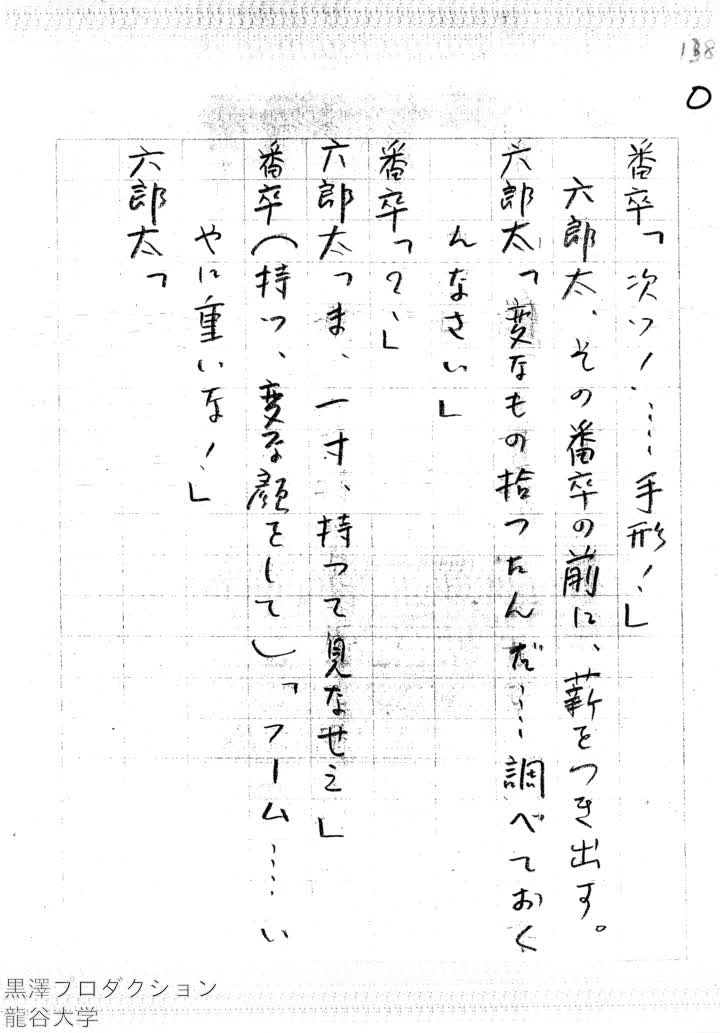 138
O
番卒「次ッ！……手形！」
六郎太、その番卒の前に、薪をつき出す。
六郎太「変なもの拾ったんだ……調べておく
んなさい」
番卒「？」
六郎太「ま、一寸、持って見なせえ」
番卒（持つ、変な顔をして）「フーム……い
やに重いな！」
六郎太「
黒澤プロダクション
龍谷大学